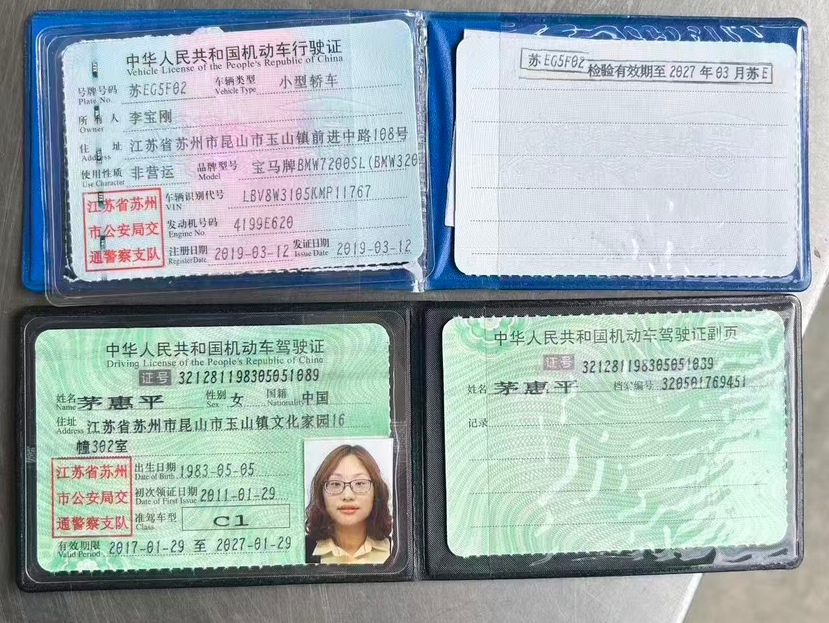 中华人民共和国机动车行驶证
Vehicle License of the People's Republic of China
号牌号码 苏EG5F02 车辆类型 小型轿车
Plate No. Vehicle Type
所有人 李宝刚
Owner
住址 江苏省苏州市昆山市玉山镇前进中路108号
Address
使用性质 非营运 品牌型号 宝马牌BMW7200SL(BMW320
Use Character
江苏省苏州
市公安局交
通警察支队
车辆识别代号 LBV8W3105KMP11767
VIN
发动机号码 4199E620
Engine No.
注册日期 2019-03-12 发证日期 2019-03-12
Register Date Issue Date
苏EG5F02 检验有效期至 2027 年 03 月苏E
中华人民共和国机动车驾驶证
Driving License of the People's Republic of China
证号 321281198305051089
姓名 茅惠平 性别 女 国籍 中国
Name Sex Nationality
住址 江苏省苏州市昆山市玉山镇文化家园16
Address
幢302室
江苏省苏州
市公安局交
通警察支队
出生日期 1983-05-05
Date of Birth
初次领证日期 2011-01-29
Date of First Issue
准驾车型 C1
Class
有效期限 2017-01-29 至 2027-01-29
Valid Period
中华人民共和国机动车驾驶证副页
证号 321281198305051089
姓名 茅惠平 档案编号 320501769451
记录